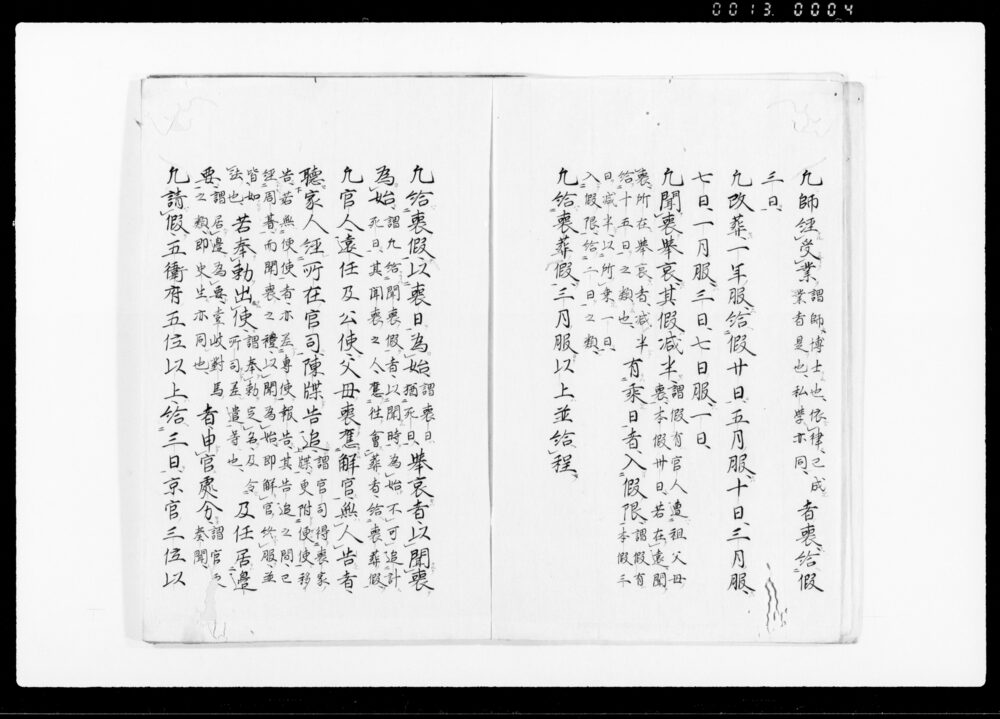 0013 0004
凡師經受業謂師博士也依律已成
業者是也私學亦同者喪給假
三日
凡改葬一年服給假廿日五月服十日三月服
七日一月服三日七日服一日
凡聞喪擧哀其假减半謂假有官人遭祖父母
喪本假卅日若在遠聞
喪所在擧哀者减半
給十五日之類也有乘日者入假限謂假有
本假三
日减半以所乗一日
入假限給二日之類
凡給喪葬假三月服以上並給程
凡給喪假以喪日為始謂喪日
猶死日擧哀者以聞喪
為始謂凡給聞喪假者以聞時為始不可追計
死日其聞喪之人舊性會葬者給喪葬假
凡官人遠任及公使父母喪舊解官無人告者
聽家人經所在官司陳牒告追謂官司得喪家
牒更附便使移
告若無使使者亦差專使報告其告追之間已
經周碁而聞喪之禮以聞為始即解官終服並
皆如
法也若奉勅出使謂奉勅定名及令
所司差遣等也及任居邊
要謂居邊為要壹岐對馬
之類即史生亦同也者申官處分謂官
奏聞
凡請假五衛府五位以上給三日京官三位以